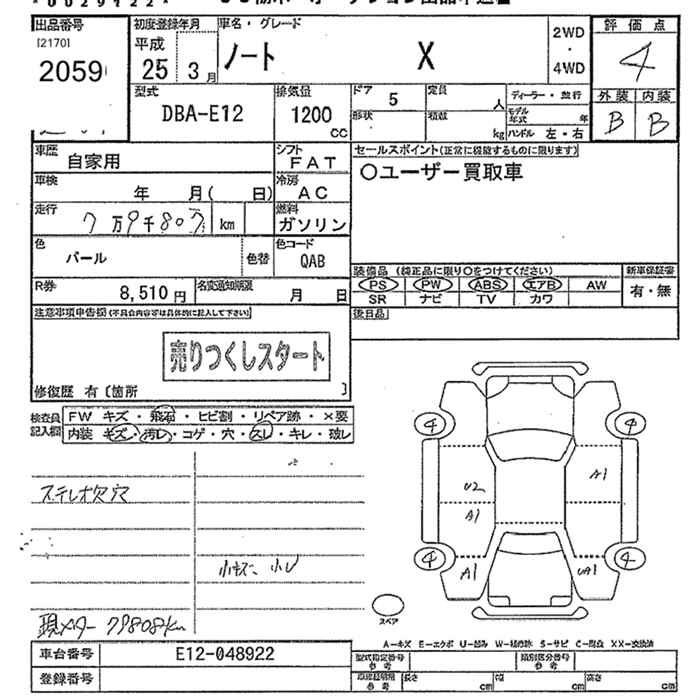 出品番号
[2170]
2059
初度登録年月
平成
25 3月
車名・グレード
ノート X
2WD
・
4WD
評価点
4
外装 内装
B B
型式
DBA-E12
排気量
1200
cc
ドア
5
定員
人
形状
積数
kg
ディーラー・並行
モデル年式
年
ハンドル 左・右
車歴
自家用
シフト
FAT
車検
年 月( 日)
冷房
AC
走行
7万9千807 km
燃料
ガソリン
色
パール
色替
色コード
QAB
R券
8,510円
名変通知期限
月 日
セールスポイント(正常に機能するものに限ります)
○ユーザー買取車
装備品 (純正品に限り○をつけてください)
PS PW ABS エアB AW
SR ナビ TV カワ
新車保証書
有・無
後日品
注意事項申告欄(不具合内容等は具体的に記入して下さい)
売りつくしスタート
修復歴 有 〔箇所 〕
検査員
記入欄
FW キズ・飛石・ヒビ割・リペア跡・×要
内装 キズ・汚レ・コゲ・穴・スレ・キレ・破レ
ステレオ欠穴
小キズ 小レ
現メーター 79808km
4 4
A1
U2
A1
4 4
A1 UA1
スペア
A-キズ E-エクボ U-凹み W-補修跡 S-サビ C-腐食 XX-交換済
車台番号
E12-048922
登録番号
型式指定番号
参考
類別区分番号
参考
車検証明細
参考
長さ cm 幅 cm 高さ cm